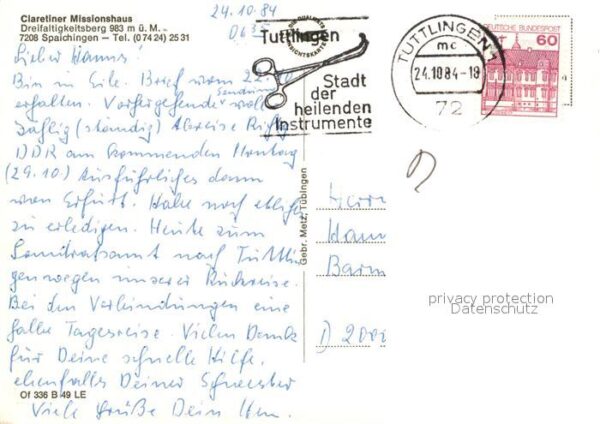 Claretiner Missionshaus
Dreifaltigkeitsberg 983 m ü. M. -
7208 Spaichingen – Tel. (07424) 2531
24.10.84
Lieber Hannes!
Bin in Eile. Brief vom 22.10
erhalten. Vorhergehende Sendung
(ständig) Abreise Richtg
DDR am kommenden Montag
(29.10) Ausführliches dann
von Erfurt. Habe noch etliches
zu erledigen. Heute zum
Landratsamt nach Tuttlin
gen wegen unserer Rückreise.
Bei den Verbindungen eine
halbe Tagesreise. Vielen Dank
für Deine schnelle Hilfe,
ebenfalls Deiner Schwester
Viele Grüße Dein
Of 336 B 49 LE
Gebr. Metz, Tübingen
Tuttlingen
Stadt
der
heilenden
Instrumente
TUTTLINGEN 1
mc
24.10.84-18
72
DEUTSCHE BUNDESPOST
60
Herrn
Hann
Barm
privacy protection
Datenschutz